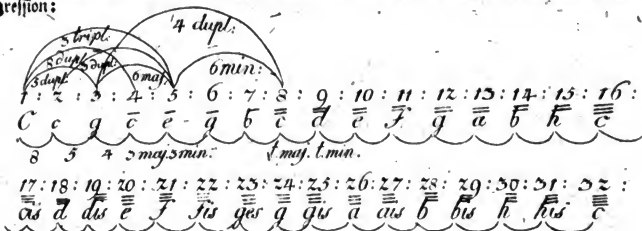 gression:
4 dupl:
3 tripl.
3 dupl.
6 maj.
6 min:
1 : 2 : 3 : 4 : 5 : 6 : 7 : 8 : 9 : 10 : 11 : 12 : 13 : 14 : 15 : 16 :
C c g c e g b c d e f g a b h c
8 5 4 3 maj. 3 min: t maj. t. min.
17 : 18 : 19 : 20 : 21 : 22 : 23 : 24 : 25 : 26 : 27 : 28 : 29 : 30 : 31 : 32 :
d dis e f fis ges g gis a ais b bis h his c